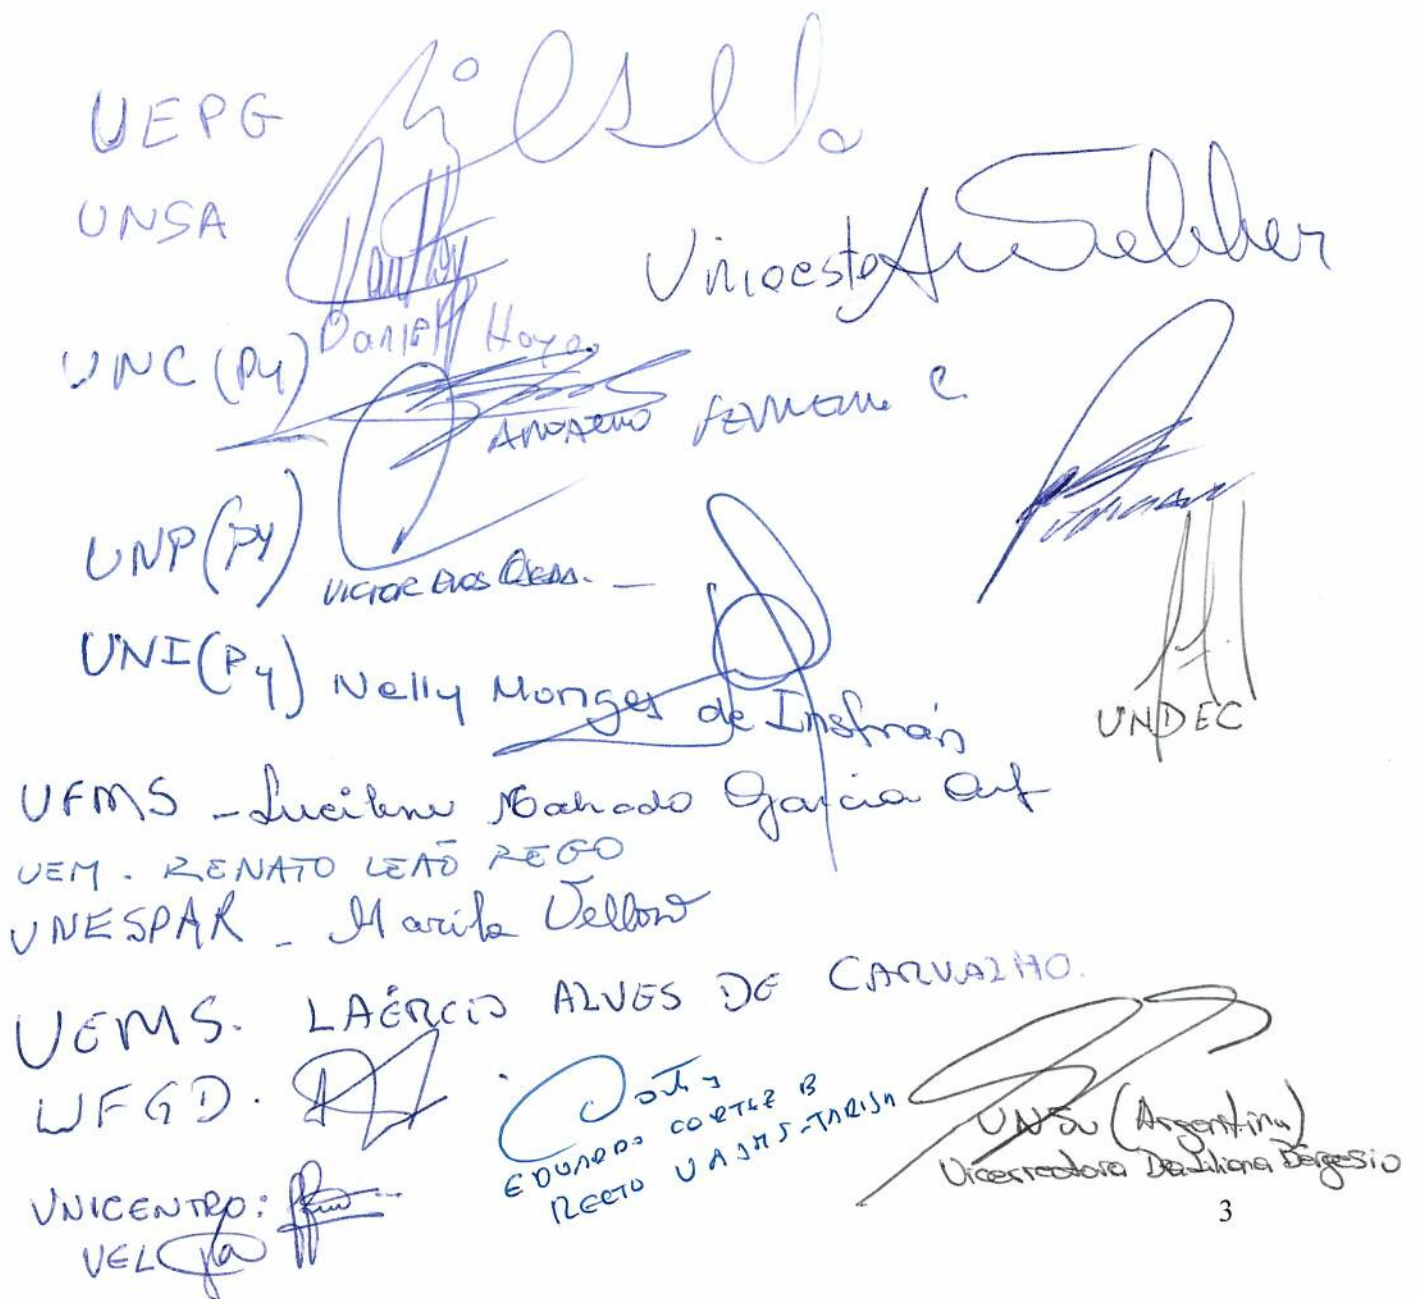 UEPG
UNSA
Daniel Hoyos
Unioeste
UNC (Py)
UNP (Py)
VICTOR
UNI (Py) Nelly Monges de Insfrán
UNDEC
UFMS - Lucilene Machado Garcia Arf
UEM. RENATO LEÃO REGO
UNESPAR - Marila Vellozo
UEMS. LAÉRCIO ALVES DE CARVALHO.
UFGD.
EDUARDO CORTEZ B
RECTO UAJMS-TARIJA
UNJu (Argentina)
Vicerrectora Dra Liliana Bergesio
UNICENTRO:
UEL
3